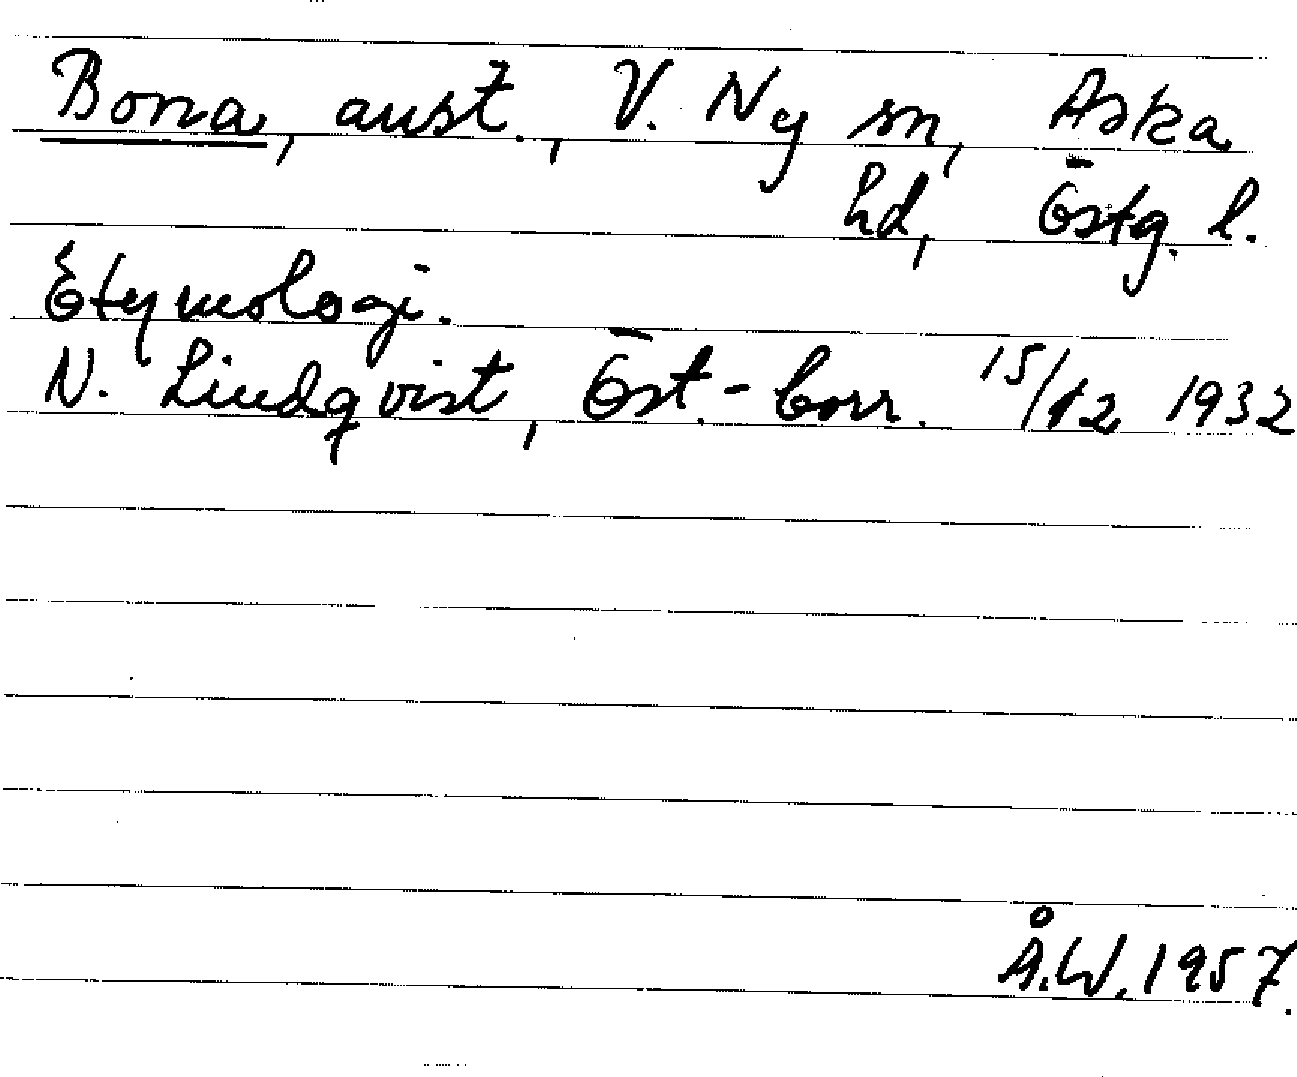 Bona, anst., V. Ny sn, Aska
hd, Östg. l.
Etymologi.
N. Lindqvist, Öst.-Corr. 15/12 1932
Å.W. 1957.